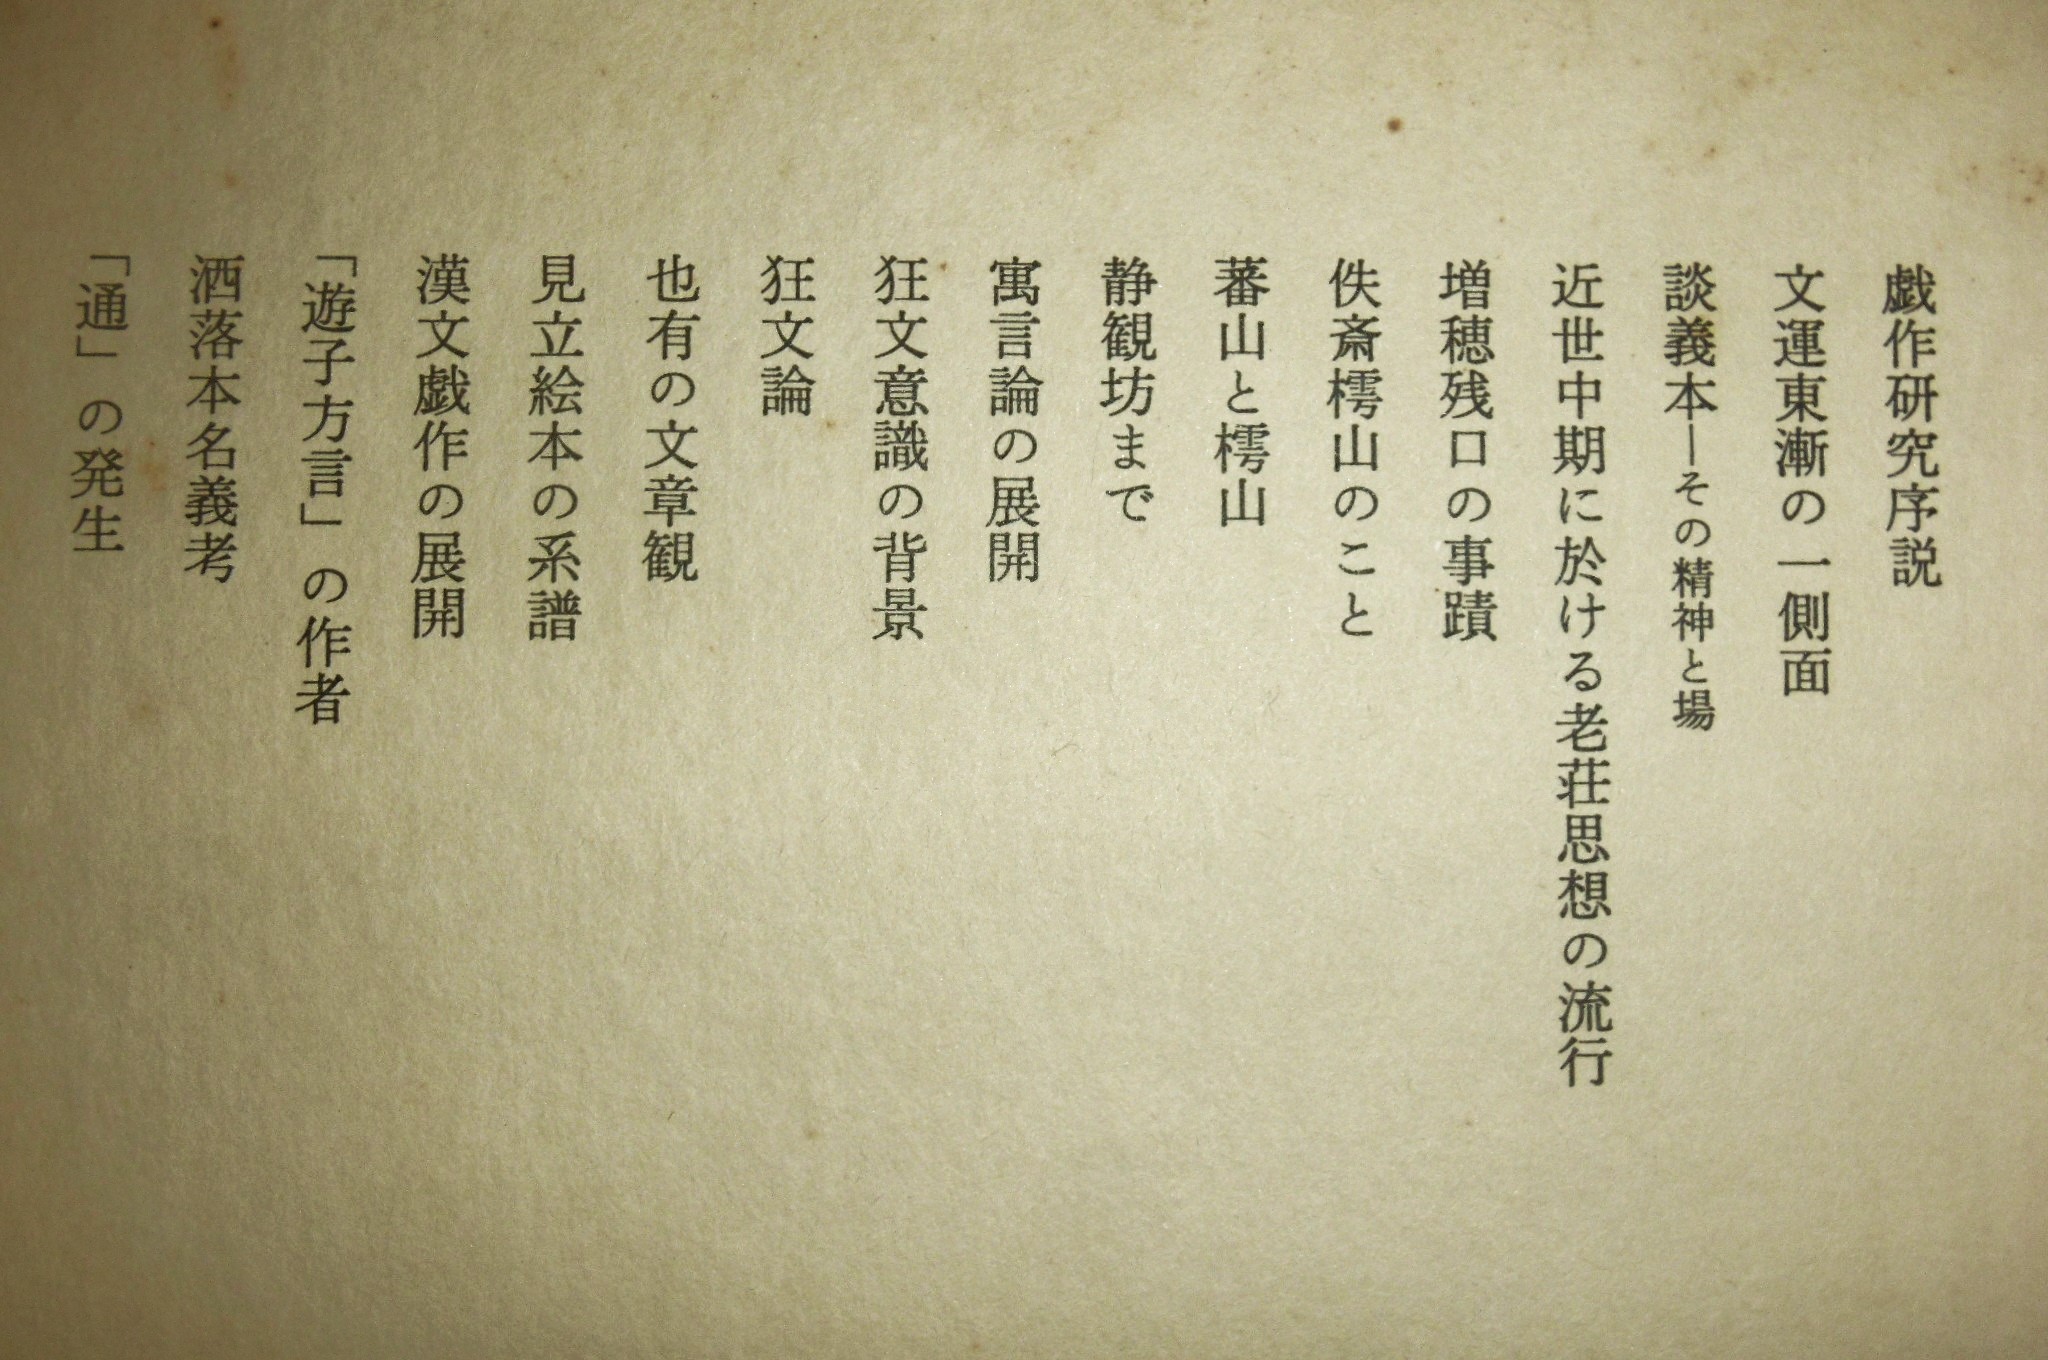 戯作研究序説
文運東漸の一側面
談義本―その精神と場
近世中期に於ける老荘思想の流行
増穂残口の事蹟
佚斎樗山のこと
蕃山と樗山
静観坊まで
寓言論の展開
狂文意識の背景
狂文論
也有の文章観
見立絵本の系譜
漢文戯作の展開
「遊子方言」の作者
洒落本名義考
「通」の発生